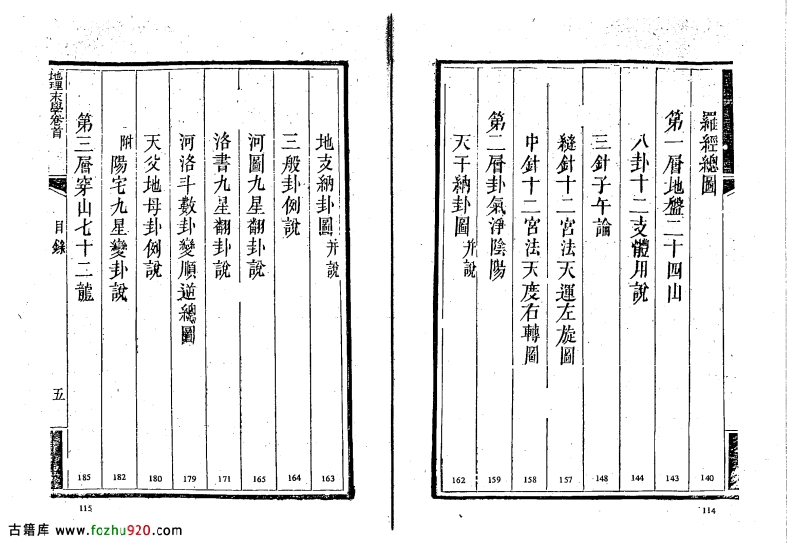 羅經總圖 140
第一層地盤二十四山 143
八卦十二支體用說 144
三針子午論 148
縫針十二宮法天運左旋圖 157
中針十二宮法天度右轉圖 158
第二層卦氣淨陰陽 159
天干納卦圖并說 162
114
地支納卦圖并說 163
三般卦例說 164
河圖九星翻卦說 165
洛書九星翻卦說 171
河洛斗數卦變順逆總圖 179
天父地母卦例說 180
附陽宅九星變卦說 182
第三層穿山七十二龍 185
地理末學卷首
目錄
五
115
古籍库 www.fozhu920.com